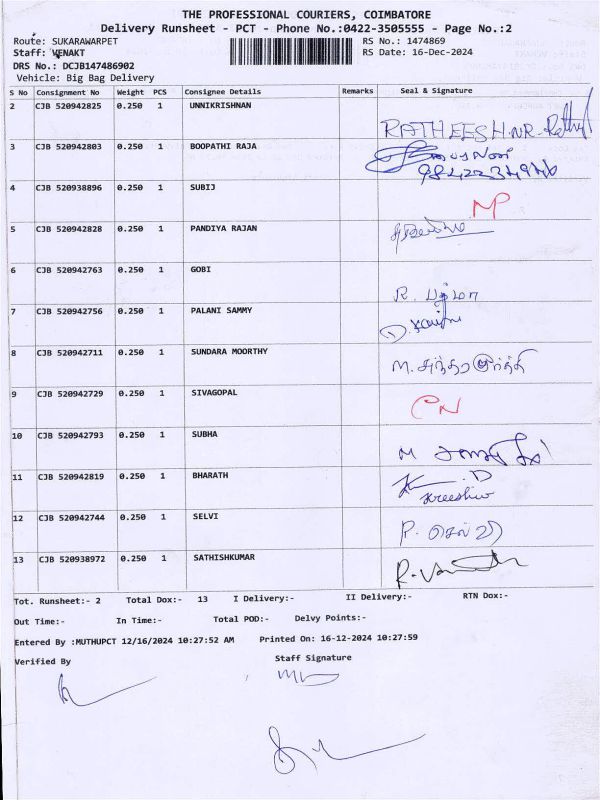 THE PROFESSIONAL COURIERS, COIMBATORE
Delivery Runsheet - PCT - Phone No.:0422-3505555 - Page No.:2
Route: SUKARAWARPET RS No.: 1474869
Staff: VENAKT RS Date: 16-Dec-2024
DRS No.: DCJB147486902
Vehicle: Big Bag Delivery
S No Consignment No Weight PCS Consignee Details Remarks Seal & Signature
2 CJB 520942825 0.250 1 UNNIKRISHNAN
RATHEESH.NR
3 CJB 520942803 0.250 1 BOOPATHI RAJA
4 CJB 520938896 0.250 1 SUBIJ
5 CJB 520942828 0.250 1 PANDIYA RAJAN
6 CJB 520942763 0.250 1 GOBI
R. பத்மா
7 CJB 520942756 0.250 1 PALANI SAMMY
8 CJB 520942711 0.250 1 SUNDARA MOORTHY
M. சுந்தரமூர்த்தி
9 CJB 520942729 0.250 1 SIVAGOPAL
10 CJB 520942793 0.250 1 SUBHA
11 CJB 520942819 0.250 1 BHARATH
12 CJB 520942744 0.250 1 SELVI
P. செல்வி
13 CJB 520938972 0.250 1 SATHISHKUMAR
Tot. Runsheet:- 2 Total Dox:- 13 I Delivery:- II Delivery:- RTN Dox:-
Out Time:- In Time:- Total POD:- Delvy Points:-
Entered By :MUTHUPCT 12/16/2024 10:27:52 AM Printed On: 16-12-2024 10:27:59
Verified By Staff Signature